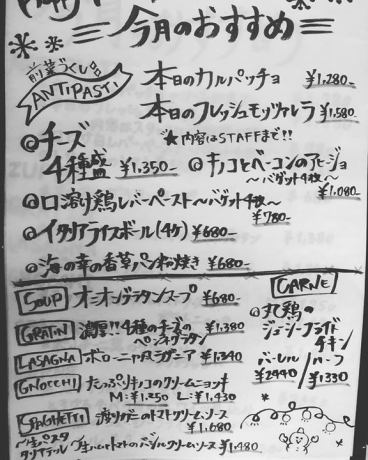 今月のおすすめ
前菜づくし
ANTIPASTI
本日のカルパッチョ ¥1,280-
本日のフレッシュモッツァレラ ¥1,580-
★内容はSTAFFまで!!
◎チーズ
4種盛 ¥1,350-
◎キノコとベーコンのアヒージョ
〜バゲット4枚〜
¥1,080-
◎口溶け鶏レバーペースト〜バゲット4枚〜
¥780-
◎イタリアライスボール(4ケ) ¥680-
◎海の幸の香草パン粉焼き ¥680-
SOUP オニオングラタンスープ ¥680-
GRATIN 濃厚!!4種のチーズの
ペンネグラタン
¥1,380
LASAGNA ボローニャ風ラザニア ¥1,340
GNOCCHI たっぷりキノコのクリームニョッキ
M:¥1,250 L:¥1,430
SPAGHETTI 渡りガニのトマトクリームソース
¥1,680
生パスタ
タリアテッレ
生ハムとトマトのバジルクリームソース ¥1,480
CARNE
◎丸鶏の
ジューシーフライド
チキン
バーレル/ハーフ
¥2440/¥1330